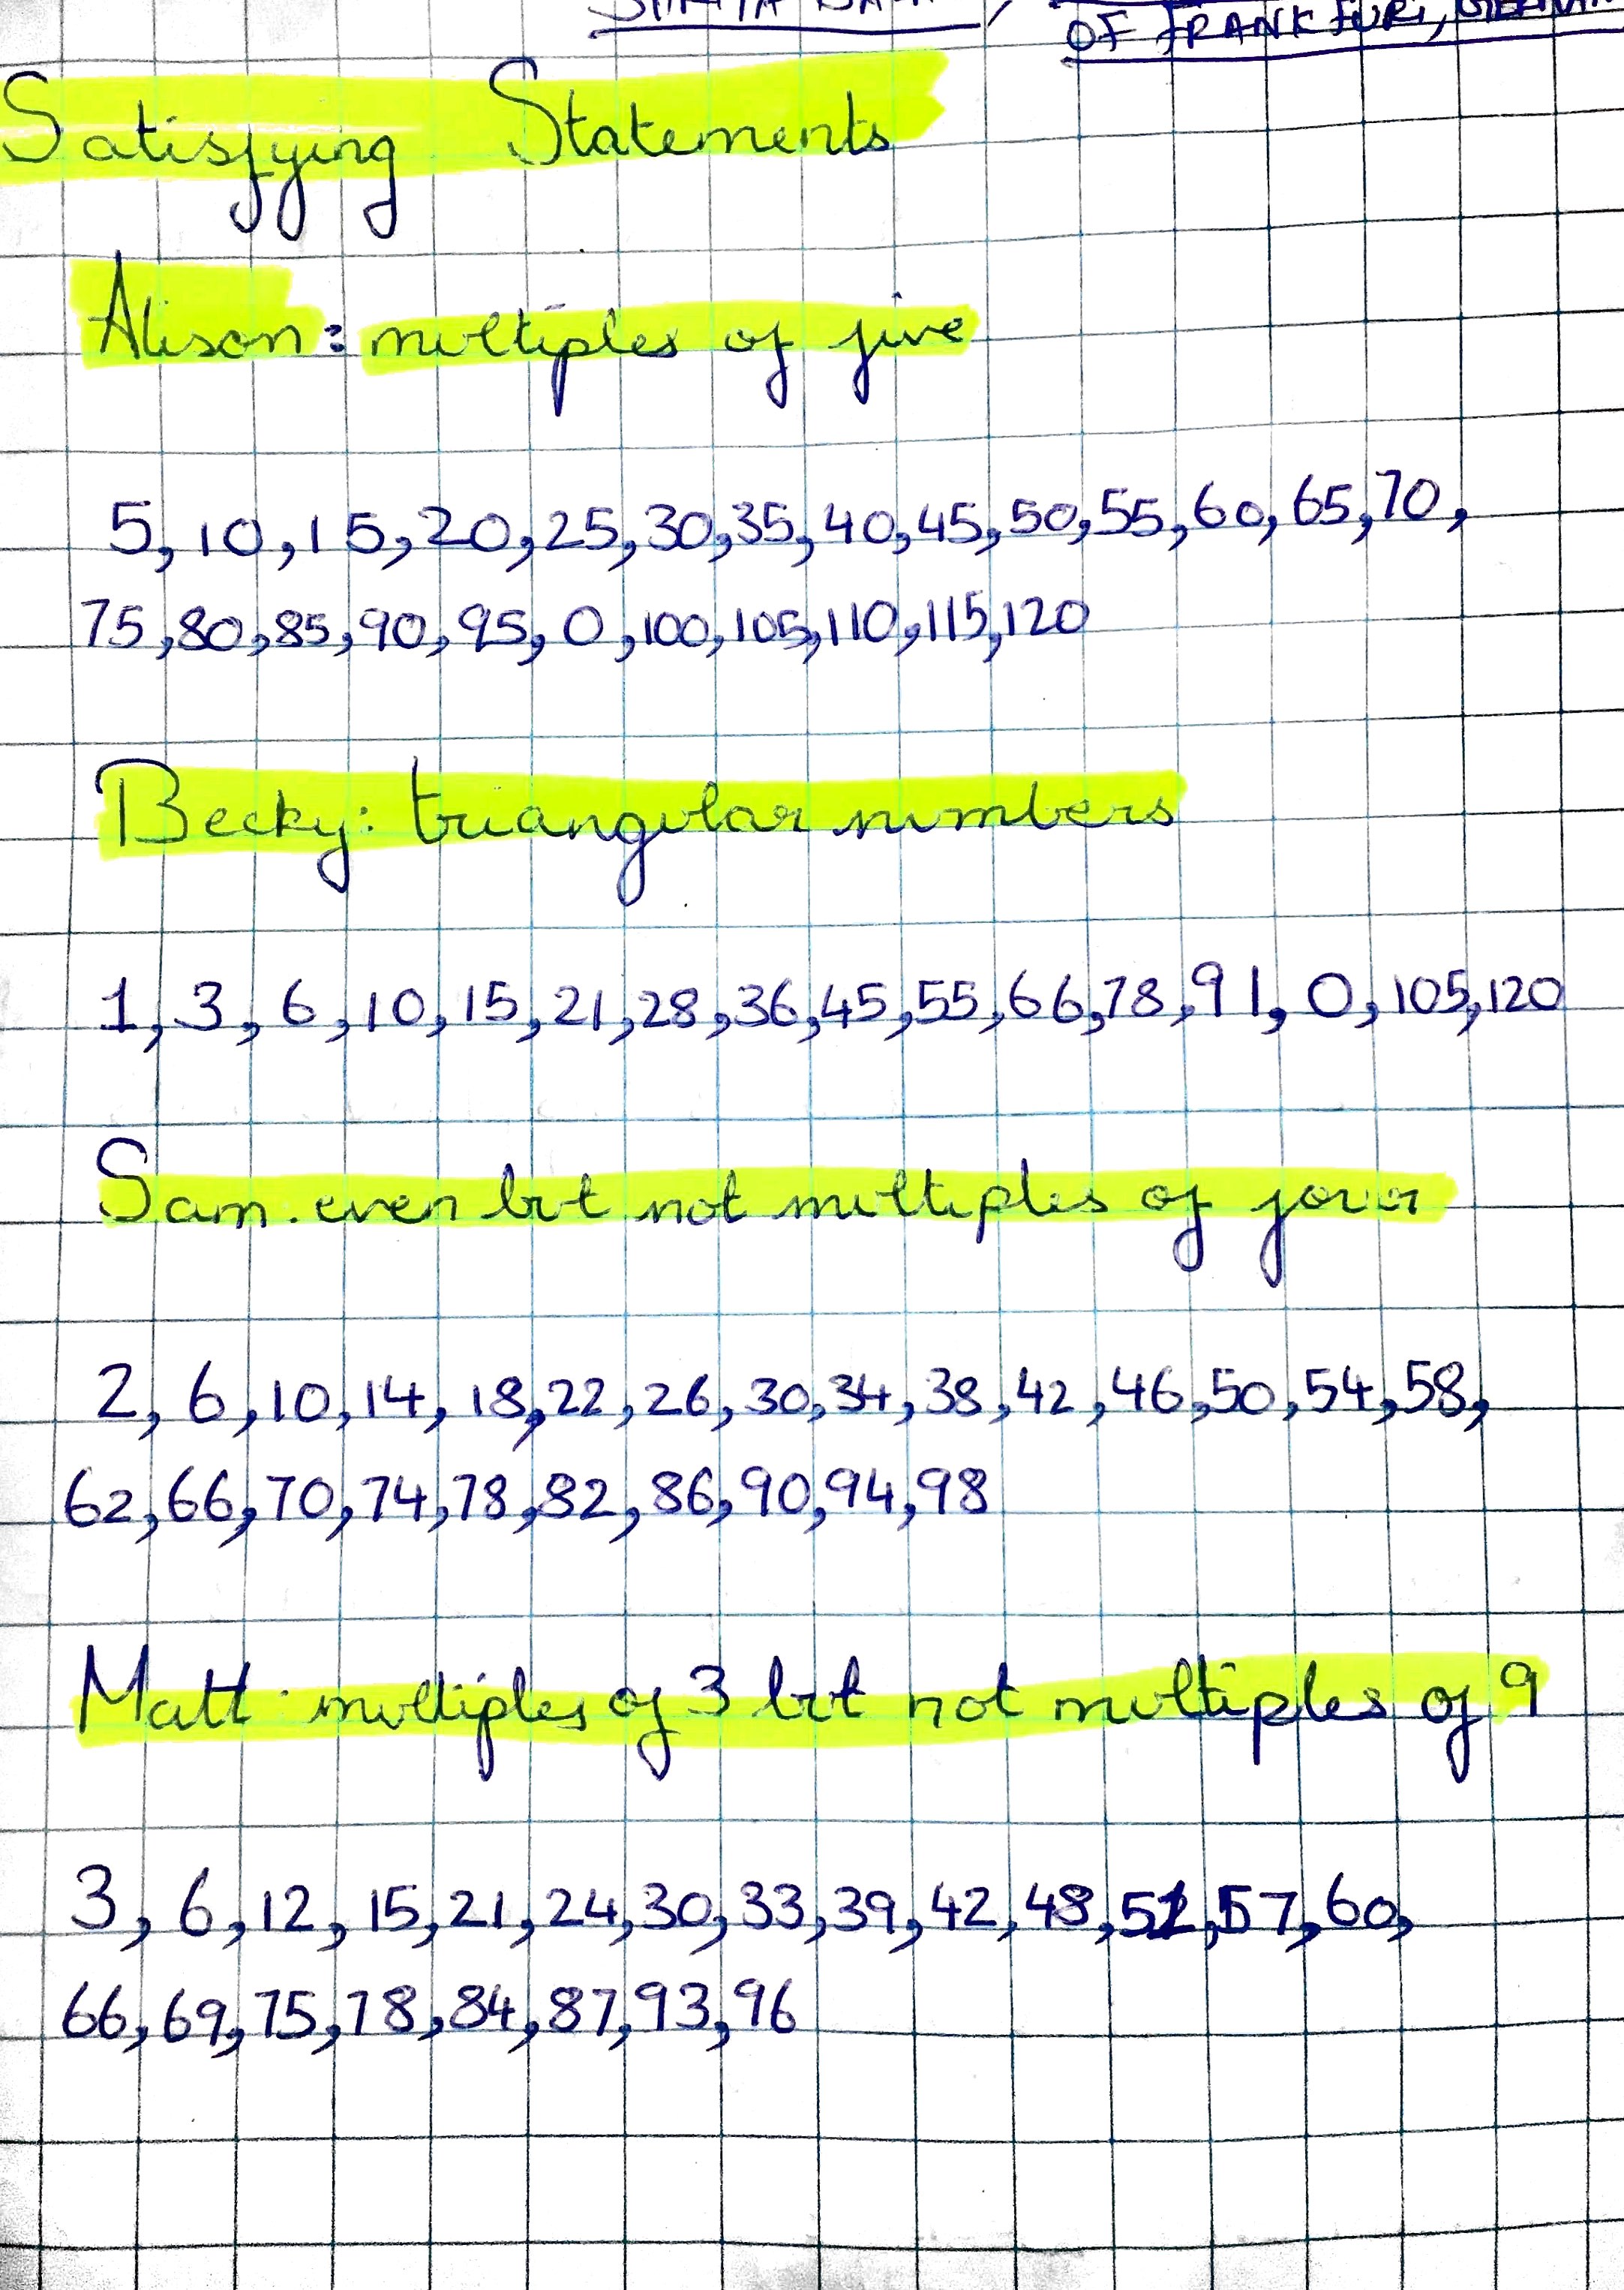 OF FRANKFURT,
Satisfying Statements
Alison: multiples of five
5, 10, 15, 20, 25, 30, 35, 40, 45, 50, 55, 60, 65, 70,
75, 80, 85, 90, 95, 0, 100, 105, 110, 115, 120
Becky: triangular numbers
1, 3, 6, 10, 15, 21, 28, 36, 45, 55, 66, 78, 91, 0, 105, 120
Sam. even but not multiples of four
2, 6, 10, 14, 18, 22, 26, 30, 34, 38, 42, 46, 50, 54, 58,
62, 66, 70, 74, 78, 82, 86, 90, 94, 98
Matt. multiples of 3 but not multiples of 9
3, 6, 12, 15, 21, 24, 30, 33, 39, 42, 48, 51, 57, 60,
66, 69, 75, 78, 84, 87, 93, 96